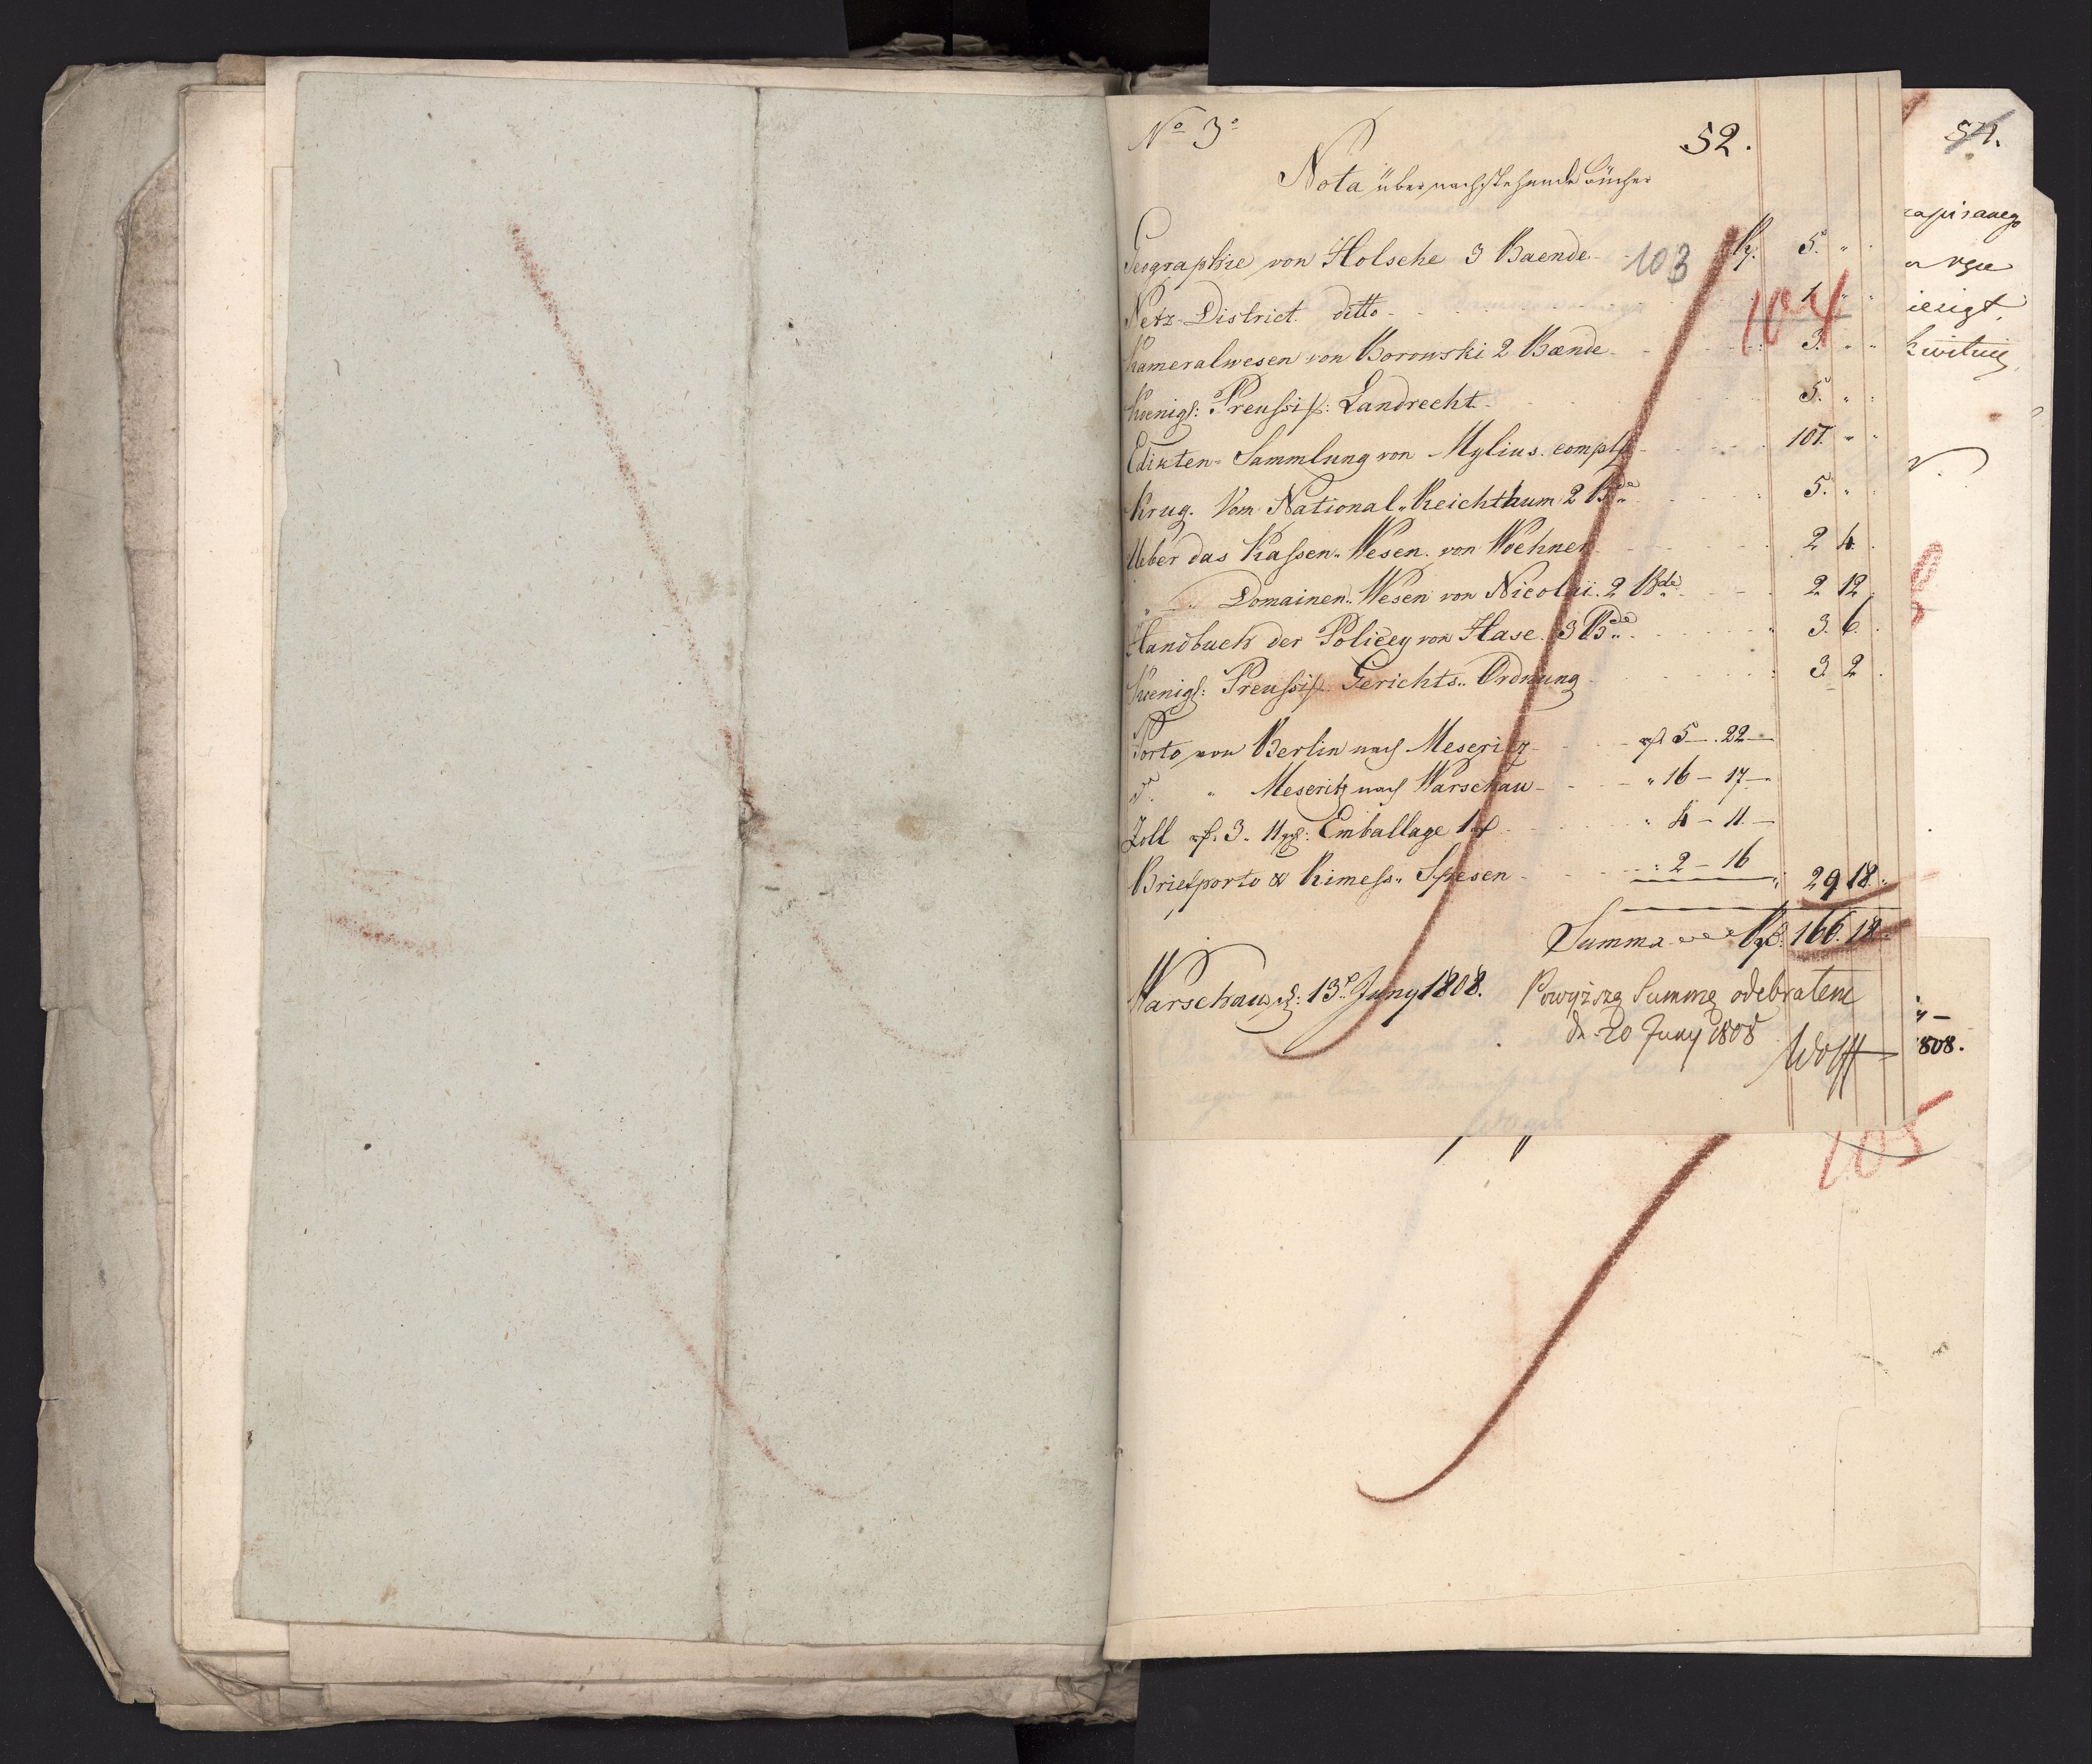 No 3o
52.
Nota über nachstehende Bücher
Geographie von Holsche 3 Baende 5. "
103
Netz-District ditto 1 "
104
Kameralwesen von Borowski 2 Bænde 3. " "
Kœnigl: Preussis: Landrecht 5. "
Edikten-Sammlung von Mylius. complt 107. " "
Krug. Vom National-Reichthum 2 Bde 5. "
Ueber das Kassen-Wesen. von Woehner 2 4
" Domainen-Wesen von Nicolai. 2 Bde 2 12
Handbuch der Policey von Hase 3 Bde 3. 6.
Kœnigl: Preussis: Gerichts-Ordnung 3 2
Porto von Berlin nach Meseritz 5 - 22 -
" Meseritz nach Warschau " 16 - 17 -
Zoll 3. 11 Emballage 1 " 4 - 11. -
Briefporto & Rimess- Spesen 2 - 16 29 18
Summa 166. 18
Warschau d: 13t Juny 1808.
Powyższą Summę odebrałem
d 20 Juny 1808
Wolff
54.
808.
105